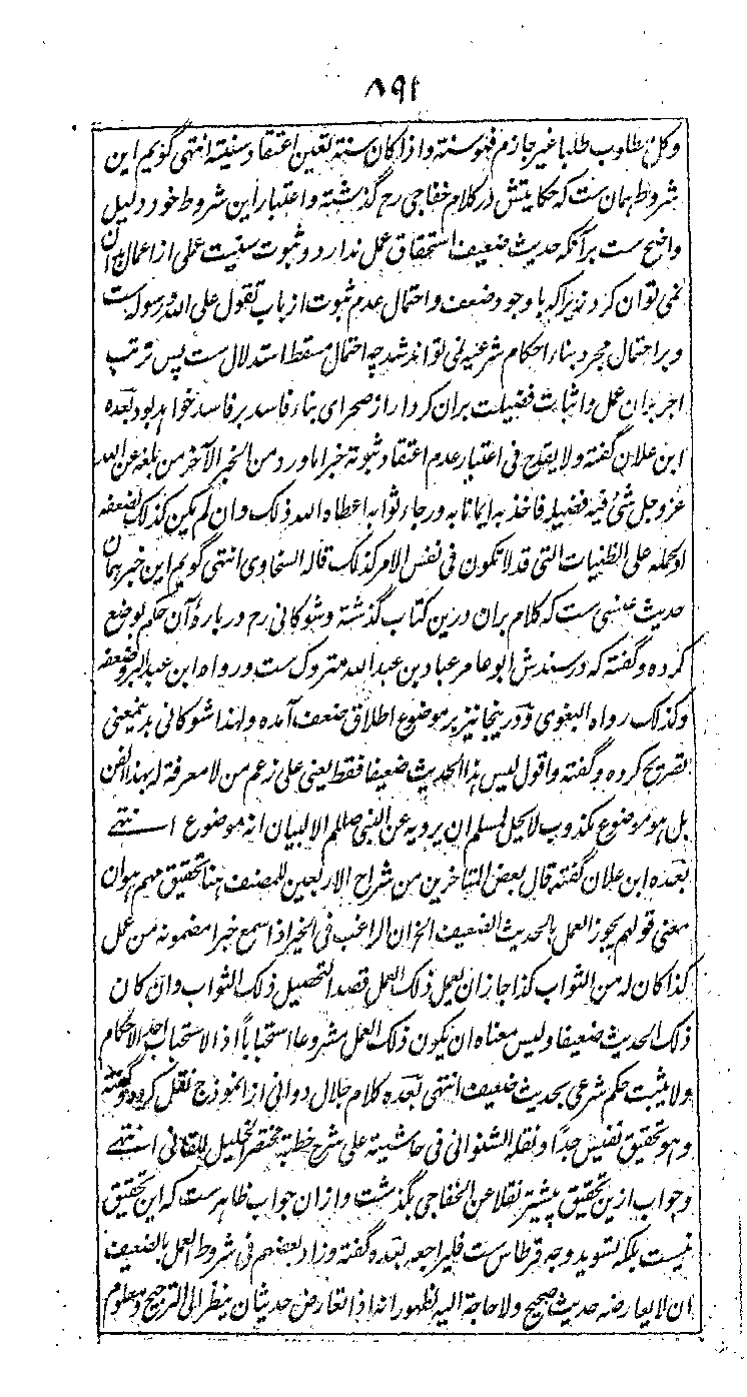 ۸۹۱
وکل مطلوب طلبا غیر جازم فهو سنة و اذا کان سنة تعین اعتقاد سنیته انتهی گویم این
شروط همان ست که حکایتش در کلام خفاجی رح گذشته و اعتبار این شروط خود دلیل
واضح ست بر آنکه حدیث ضعیف استحقاق عمل ندارد و ثبوت سنیت عملی از اعمال بدان
نمی توان کرد زیرا که با وجود ضعف و احتمال عدم ثبوت از باب تقول علی الله و رسوله ست
و بر احتمال مجرد بناء احکام شرعیه نمی تواند شد چه احتمال مسقط استدلال ست پس ترتب
اجر بران عمل و اثبات فضیلت بران کردار از صحرای بناء فاسد بر فاسد خواهد بود بعده
ابن علان گفته ولا یقدح فی اعتبار عدم اعتقاد ثبوته خبرا ما ورد من الخبر الآخر من بلغه عن الله
عز وجل شئ فیه فضیلة فاخذ به ایمانا به و رجاء ثوابه اعطاه الله ذلک و ان لم یکن کذلک لضعفه
او لحمله علی الظنیات التی قد لا تکون فی نفس الامر کذلک قاله السخاوی انتهی گویم این خبر همان
حدیث ست که کلام بران درین کتاب گذشته و شوکانی رح درباره آن حکم بوضع
کرده و گفته که در سندش ابو عامر عباد بن عبد الله متروک ست و رواه ابن عبد البر و ضعفه
و کذلک رواه البغوی و درینجا نیز بر موضوع اطلاق ضعف آمده و لهذا شوکانی بدینمعنی
تصریح کرده و گفته و اقول لیس هذا الحدیث ضعیفا فقط یعنی علی زعم من لا معرفة له بهذا الفن
بل هو موضوع مکذوب لا یحل لمسلم ان یرویه عن النبی صلعم الا لبیان انه موضوع انتهی
بعده ابن علان گفته قال بعض المتأخرین من شراح الاربعین للمصنف هنا تحقیق مهم هو ان
معنی قولهم یجوز العمل بالحدیث الضعیف الخ ان الراغب فی الخیر اذا سمع خبرا مضمونه من عمل
کذا کان له من الثواب کذا جاز ان یعمل ذلک العمل قصدا لتحصیل ذلک الثواب و ان کان
ذلک الحدیث ضعیفا و لیس معناه ان یکون ذلک العمل مشروعا استحبابا اذ الاستحباب احد الاحکام
ولا یثبت حکم شرعی بحدیث ضعیف انتهی بعده کلام جلال دوانی از انموذج نقل کرده و گفته
و هو تحقیق نفیس جدا و نقله الشنوانی فی حاشیته علی شرح خطبة مختصر الخلیل للقانی انتهی
و جواب ازین تحقیق پیشتر نقلا عن الخفاجی بگذشت و ازان جواب ظاهر ست که این تحقیق
نیست بلکه تسوید وجه قرطاس ست فلیراجعه بعده گفته و زاد بعضهم فی شروط العمل بالضعیف
ان لا یعارضه حدیث صحیح ولا حاجة الیه لظهور انه اذا تعارض حدیثان ینظر الی الترجیح و معلوم